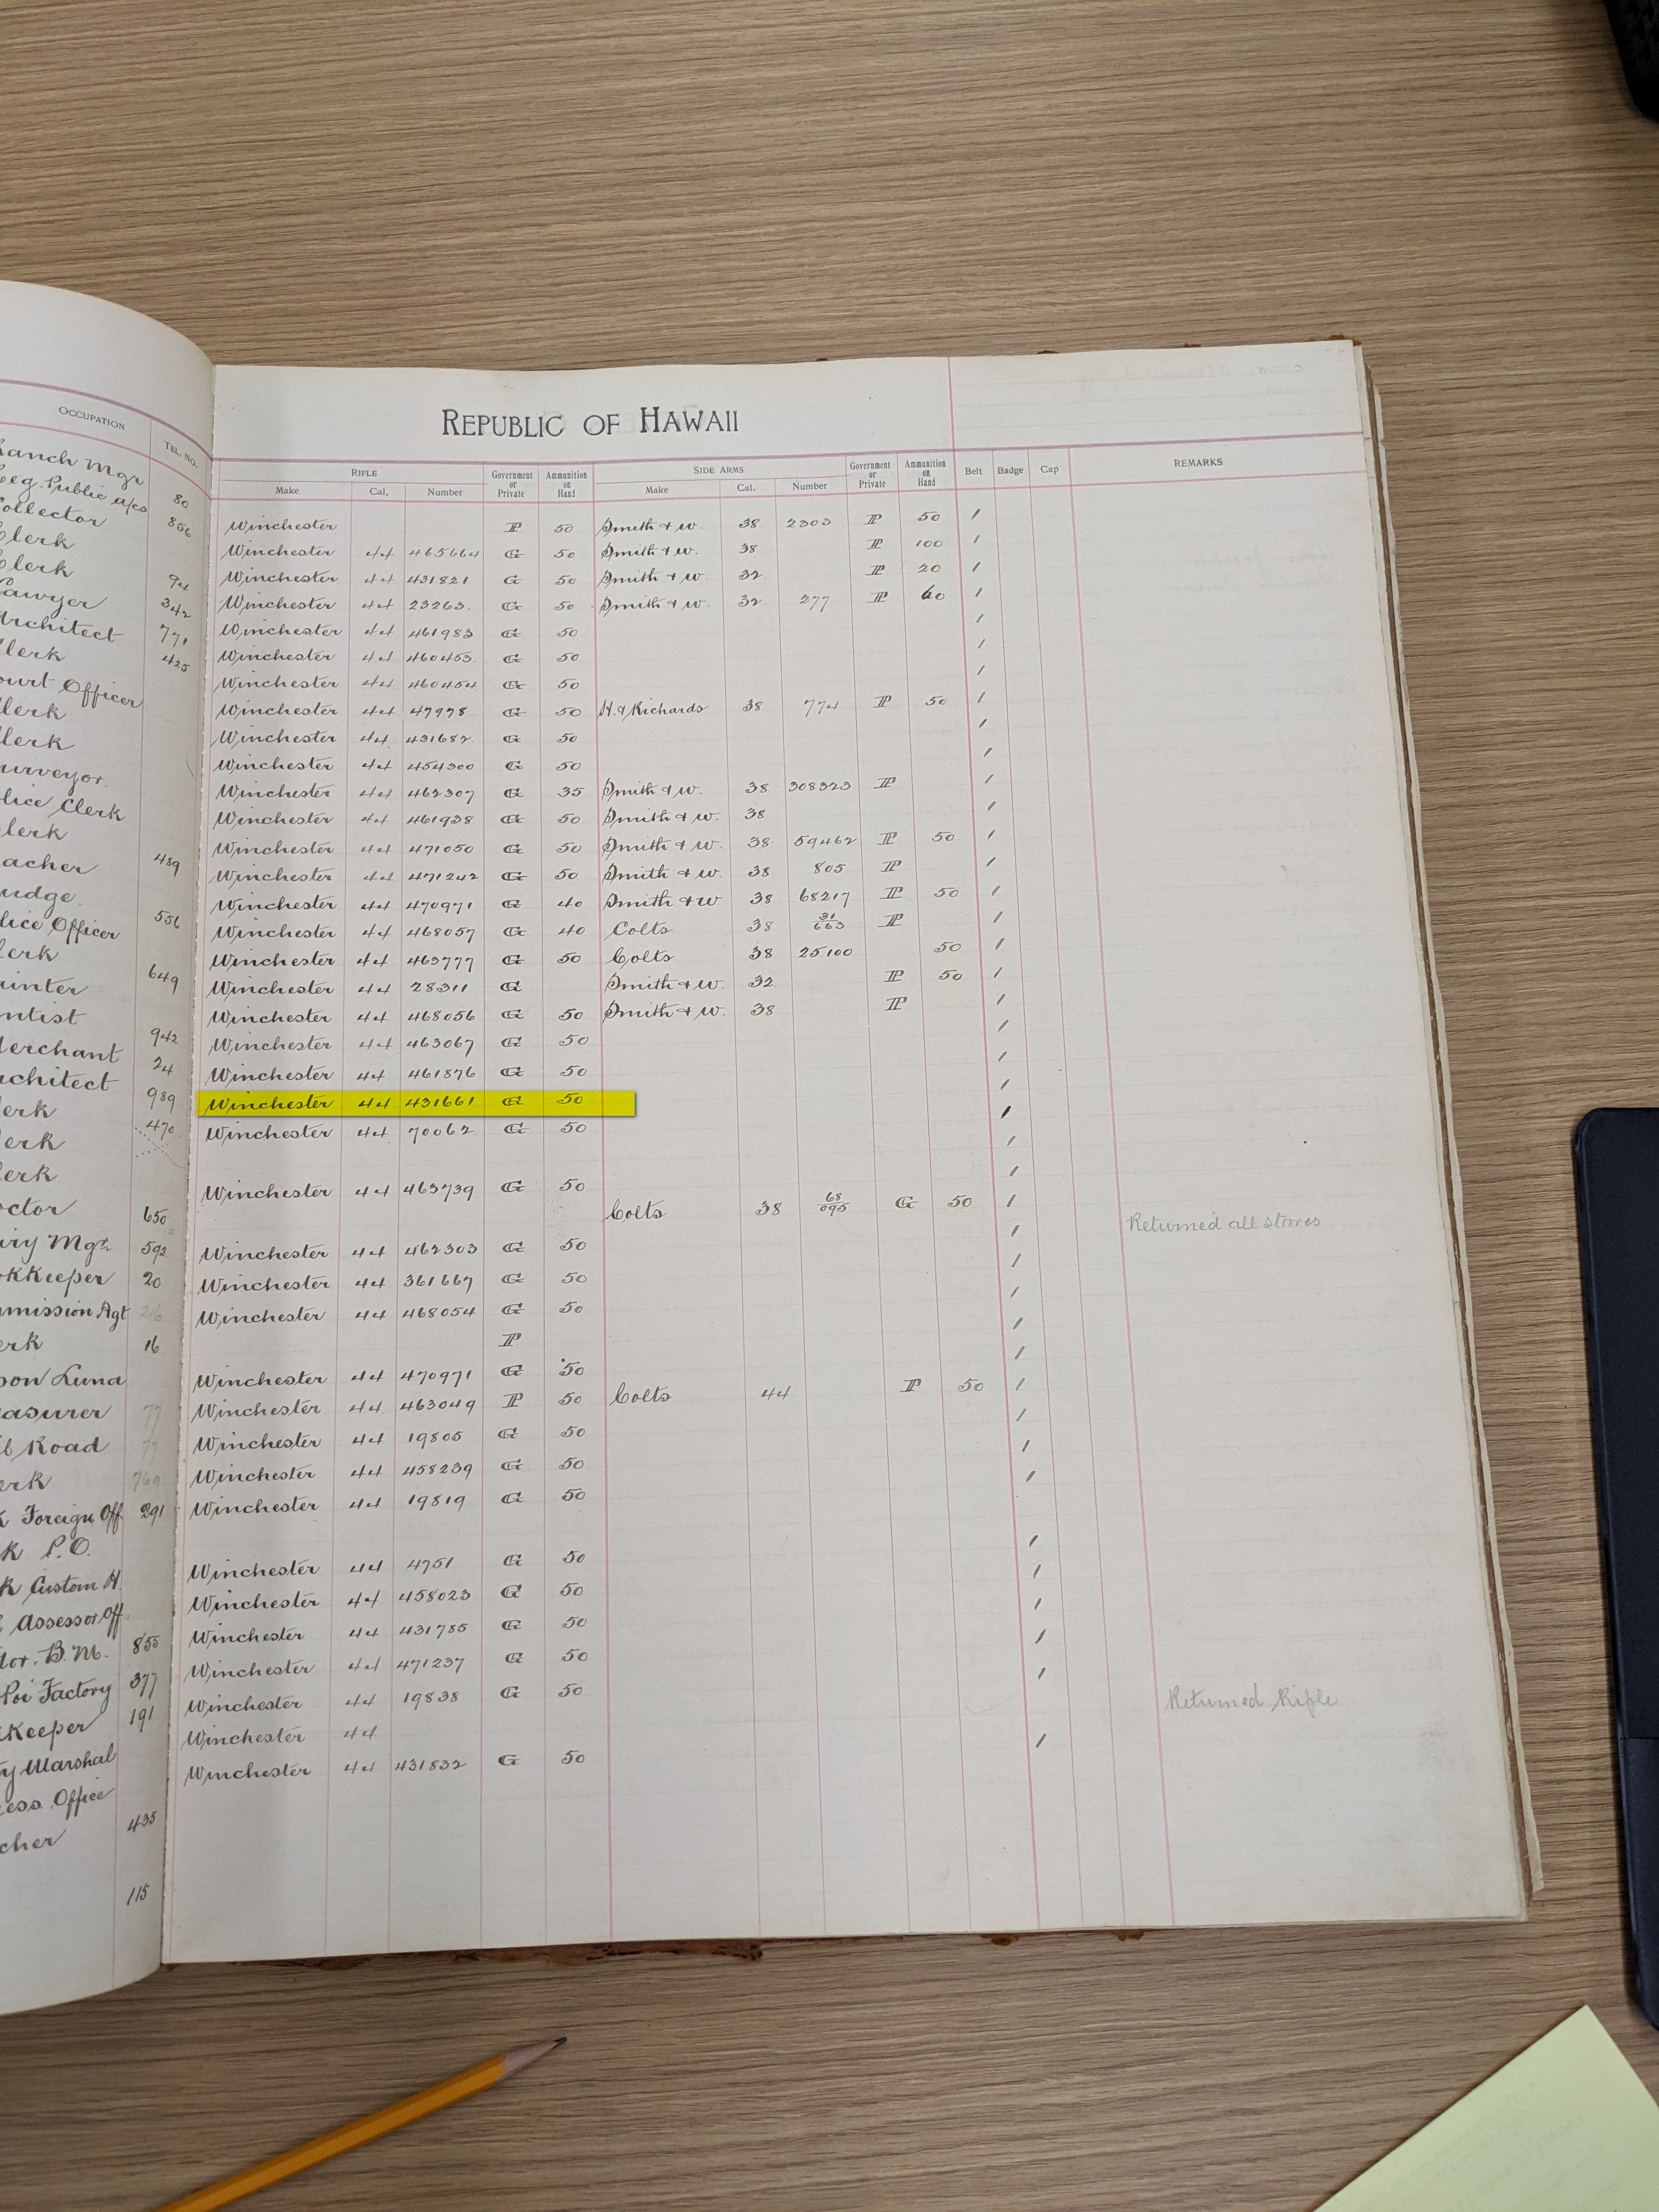 REPUBLIC OF HAWAII
OCCUPATION TEL. NO.
RIFLE Government or Private Ammunition on Hand SIDE ARMS Government or Private Ammunition on Hand Belt Badge Cap REMARKS
Make Cal. Number Make Cal. Number
Ranch Mgr 80
Public a/cs 856
ollector
Clerk
Clerk 94
Lawyer 342
Architect 771
lerk 425
ourt Officer
lerk
lerk
urveyor.
lice Clerk
lerk
acher 489
udge.
lice Officer 556
lerk
inter 649
ntist
erchant 942
rchitect 24
erk 989
erk 470
erk
octor 650
iry Mgr. 592
okKeeper 20
mmission Agt 216
erk 16
son Luna
easurer 77
l Road 77
erk 769
k Foreign Off 291
k P.O.
k Custom H.
Assessor off.
tor. B.M. 855
Poi Factory 377
kKeeper 191
ty Marshal
ess Office
cher 435
115
Winchester P 50 Smith & W. 38 2303 P 50 /
Winchester 44 465664 G 50 Smith & W. 38 P 100 /
Winchester 44 431821 G 50 Smith & W. 32 P 20 /
Winchester 44 23263. G 50 Smith & W. 32 277 P 60 /
Winchester 44 461983 G 50 /
Winchester 44 460453 G 50 /
Winchester 44 460454 G 50 /
Winchester 44 47978 G 50 H. & Richards 38 774 P 50 /
Winchester 44 431682 G 50 /
Winchester 44 454300 G 50 /
Winchester 44 462307 G 35 Smith & W. 38 308323 P /
Winchester 44 461938 G 50 Smith & W. 38 /
Winchester 44 471050 G 50 Smith & W. 38 59462 P 50 /
Winchester 44 471242 G 50 Smith & W. 38 805 P /
Winchester 44 470971 G 40 Smith & W 38 68217 P 50 /
Winchester 44 468057 G 40 Colts 38 31/663 P /
Winchester 44 463777 G 50 Colts 38 25100 50 /
Winchester 44 28311 G Smith & W. 32 P 50 /
Winchester 44 468056 G 50 Smith & W. 38 P /
Winchester 44 463067 G 50 /
Winchester 44 461876 G 50 /
Winchester 44 431661 G 50 /
Winchester 44 70062 G 50 /
/
Winchester 44 463739 G 50 /
Colts 38 68/095 G 50 / Returned all stores
Winchester 44 462303 G 50 /
Winchester 44 361667 G 50 /
Winchester 44 468054 G 50 /
P /
Winchester 44 470971 G 50 /
Winchester 44 463049 P 50 Colts 44 P 50 /
Winchester 44 19805 G 50 /
Winchester 44 458239 G 50 /
Winchester 44 19819 G 50 /
Winchester 44 4751 G 50 /
Winchester 44 458023 G 50 /
Winchester 44 431785 G 50 /
Winchester 44 471237 G 50 /
Winchester 44 19838 G 50 / Returned Rifle
Winchester 44
Winchester 44 431832 G 50 /